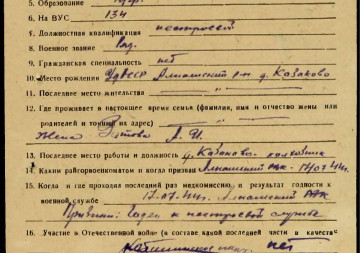 5. Образование
6. На ВУС 134
8. Должностная квалификация нестроевой
9. Военное звание Ряд.
9. Гражданская специальность нет
10. Место рождения УдАССР Алнашский р-н д. Казаково
11. Последнее место жительства — " —
12. Где проживает в настоящее время семья (фамилия, имя и отчество жены или
родителей и точный их адрес)
Жена
13. Последнее место работы и должность д. Казаково колхозник
14. Каким райгорвоенкоматом и когда призван Алнашский 17.07.44г.
15. Когда и где проходил последний раз медкомиссию и результат годности к
военной службе 17.07.44г. Алнашский РВК
Признан: годен к нестроевой службе
16. Участие в Отечественной войне (в составе какой последней части в качестве
нет